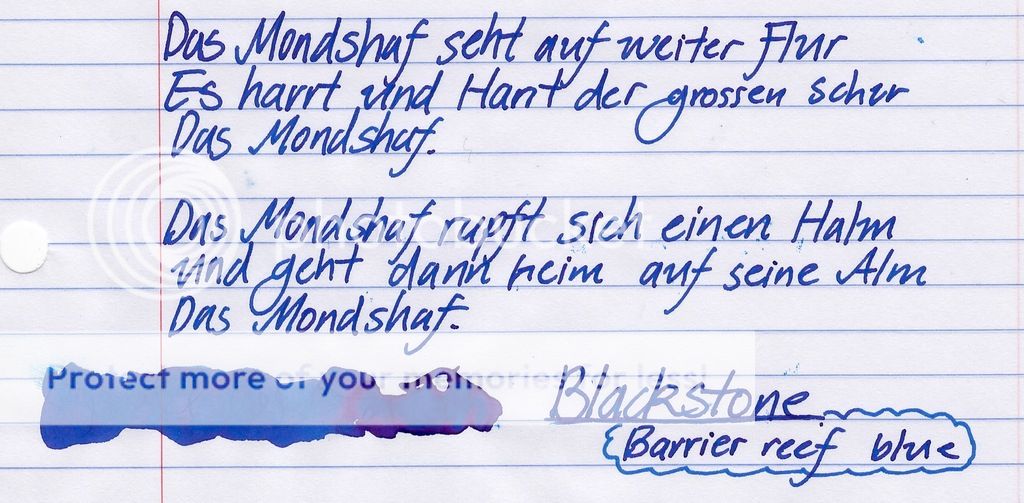 Das Mondshaf seht auf weiter Flur
Es harrt und Harrt der grossen Schur
Das Mondshaf.
Das Mondshaf rupft sich einen Halm
und geht dann heim auf seine Alm
Das Mondshaf.
Protect more of your memories for less!
Blackstone
Barrier reef blue